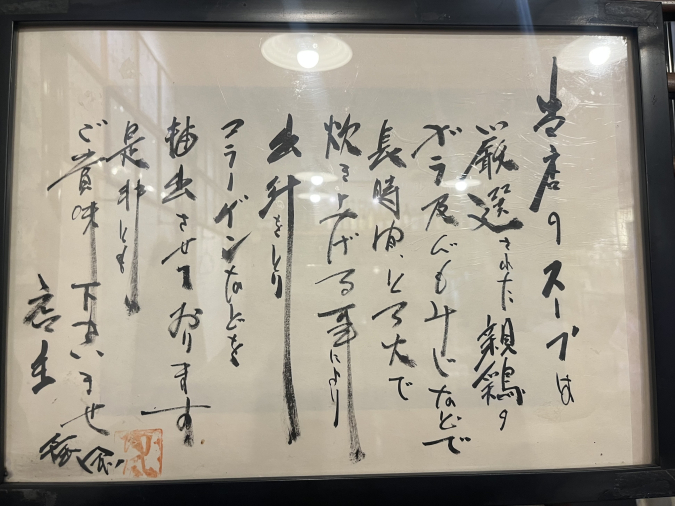 当店のスープは
厳選された親鶏の
ガラ及びもみじなどで
長時間、とろ火で
炊き上げる事により
出汁をとり
コラーゲンなどを
抽出させております
是非とも
ご賞味下さいませ
店主